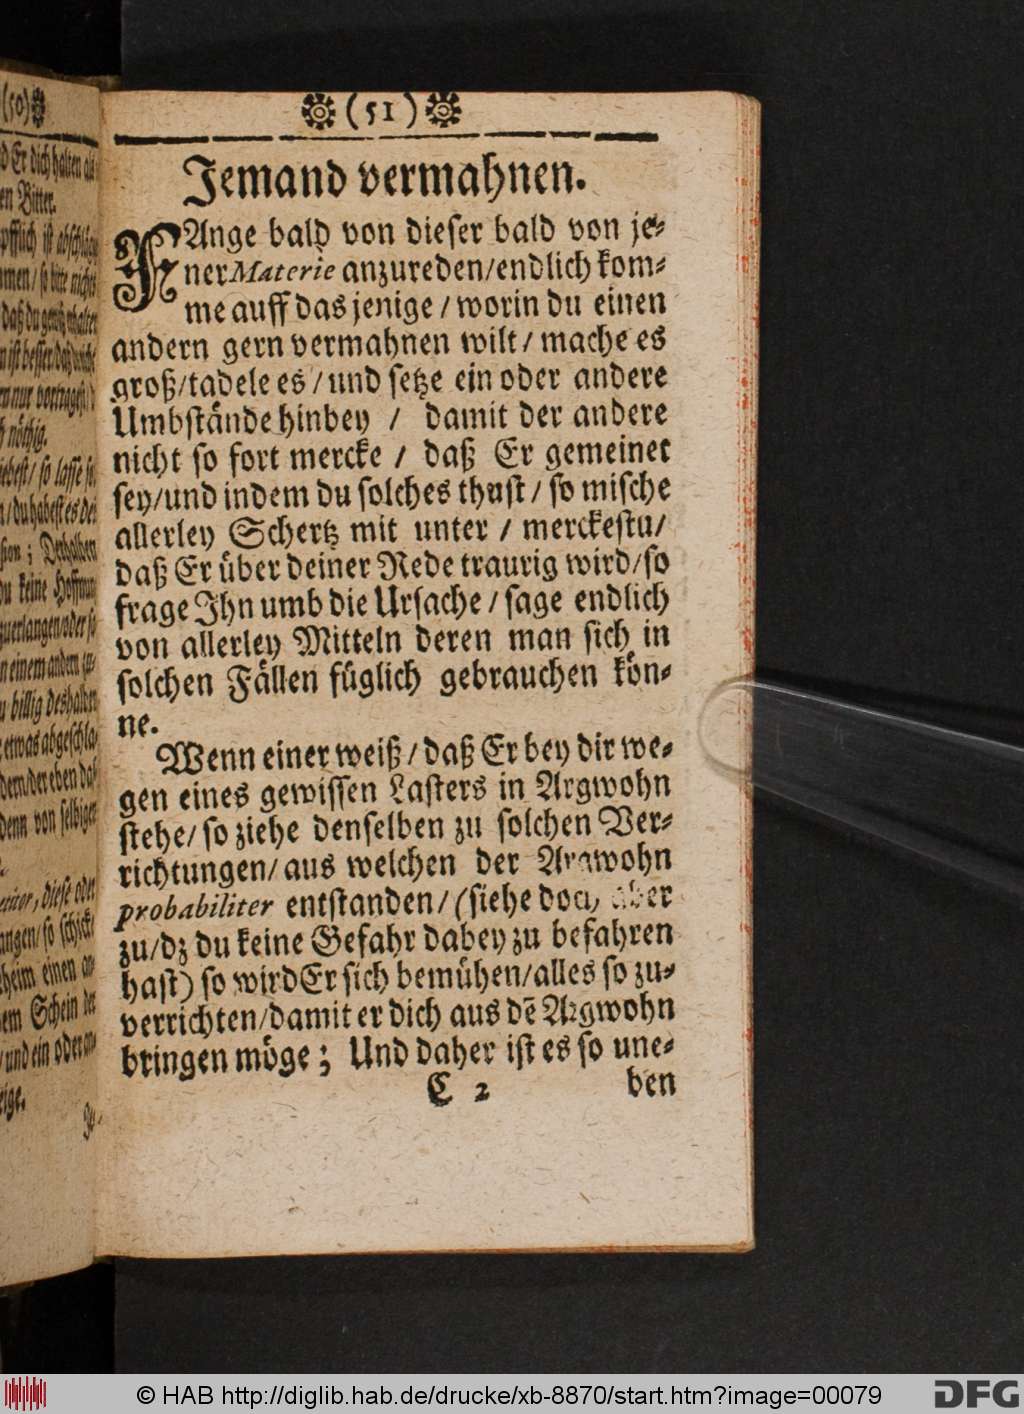 (50)
❁ (51) ❁
Jemand vermahnen.
FAnge bald von dieser bald von je⸗
ner Materie anzureden/endlich kom⸗
me auff das jenige / worin du einen
andern gern vermahnen wilt / mache es
groß/tadele es / und setze ein oder andere
Umbstände hinbey / damit der andere
nicht so fort mercke / daß Er gemeinet
sey/und indem du solches thust / so mische
allerley Schertz mit unter / merckestu/
daß Er über deiner Rede traurig wird/so
frage Jhn umb die Ursache / sage endlich
von allerley Mitteln deren man sich in
solchen Fällen füglich gebrauchen kön⸗
ne.
Wenn einer weiß / daß Er bey dir we⸗
gen eines gewissen Lasters in Argwohn
stehe/ so ziehe denselben zu solchen Ver⸗
richtungen/ aus welchen der Argwohn
probabiliter entstanden/ (siehe doch aber
zu/dz du keine Gefahr dabey zu befahren
hast) so wird Er sich bemühen/alles so zu⸗
verrichten/damit er dich aus dẽ Argwohn
bringen möge; Und daher ist es so une⸗
C 2 ben
© HAB http://diglib.hab.de/drucke/xb-8870/start.htm?image=00079
DFG